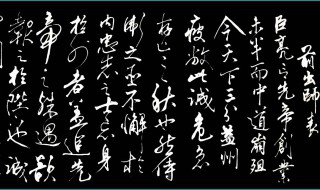 前出師表
臣亮言先帝創業
未半而中道崩殂
今天下三分益州
疲敝此誠危急
存亡之秋也然侍
衛之臣不懈於
内忠志之士忘身
於外者蓋追先
帝之殊遇欲
報之於陛下也誠